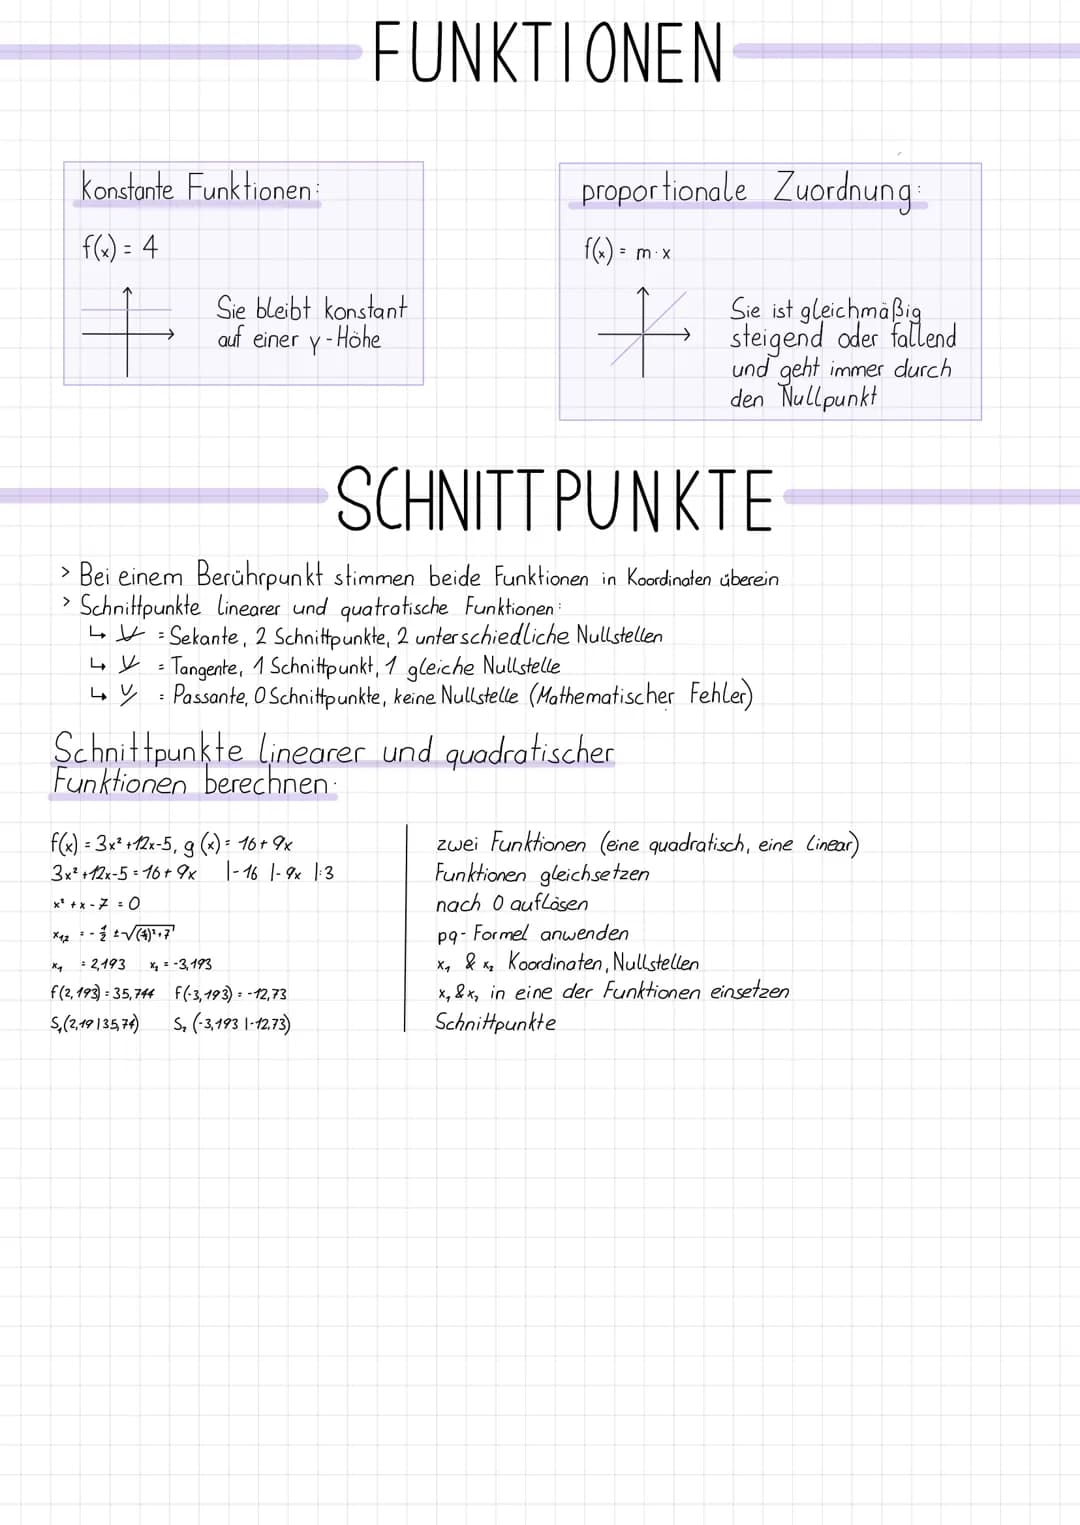 FUNKTIONEN
konstante Funktionen:
f(x) = 4
Sie bleibt konstant
auf einer y-Höhe
proportionale Zuordnung:
f(x) = m·x
Sie ist gleichmäßig
steigend oder fallend
und geht immer durch
den Nullpunkt
SCHNITTPUNKTE
> Bei einem Berührpunkt stimmen beide Funktionen in Koordinaten überein
> Schnittpunkte linearer und quatratische Funktionen:
↳ = Sekante, 2 Schnittpunkte, 2 unterschiedliche Nullstellen
↳ = Tangente, 1 Schnittpunkt, 1 gleiche Nullstelle
↳ = Passante, 0 Schnittpunkte, keine Nullstelle (Mathematischer Fehler)
Schnittpunkte linearer und quadratischer
Funktionen berechnen:
f(x) = 3x² +12x-5, g(x) = 16 + 9x
3x² +12x-5 = 16 + 9x |-16 |-9x |:3
x² + x - 7 = 0
x₁₂ = - ½ ± √(½)²+7
x₁ = 2,193 x₂ = -3,193
f(2,193) = 35,744 f(-3,193) = -12,73
S₁(2,19|35,74) S₂ (-3,193 |-12,73)
zwei Funktionen (eine quadratisch, eine linear)
Funktionen gleichsetzen
nach 0 auflösen
pq-Formel anwenden
x₁ & x₂ Koordinaten, Nullstellen
x₁ & x₂ in eine der Funktionen einsetzen
Schnittpunkte